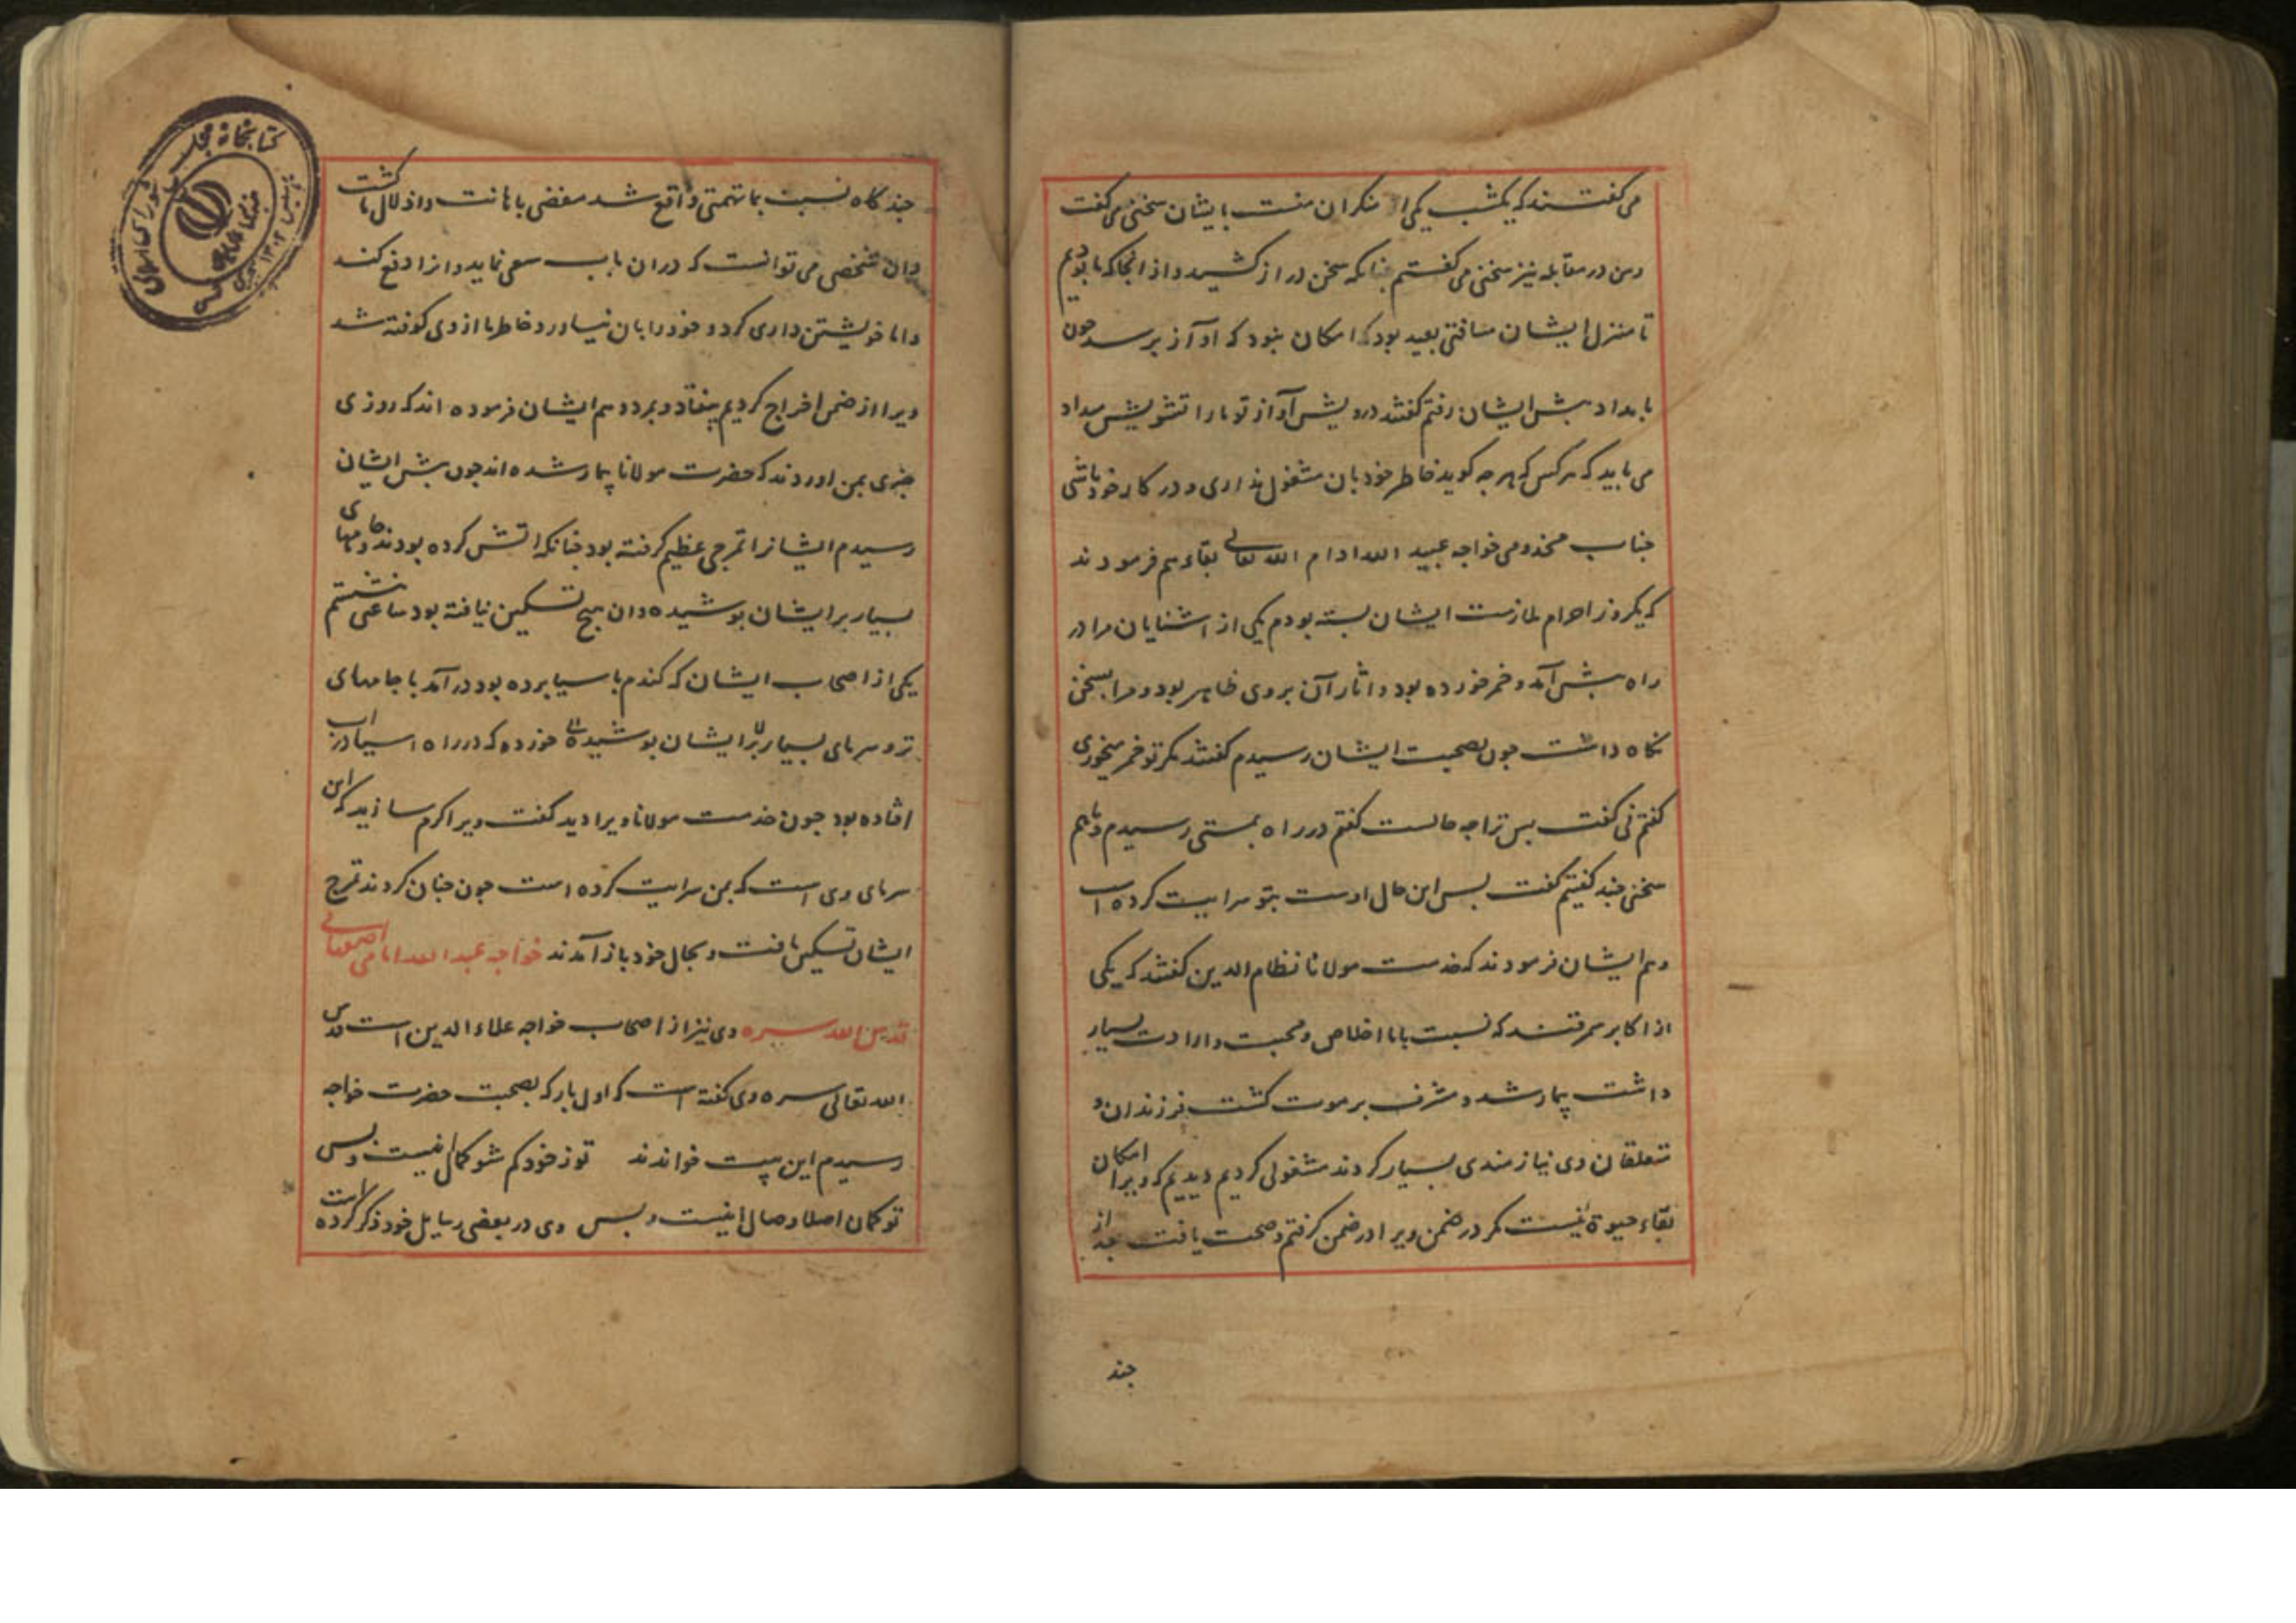 می گفتند که یکشب یکی از منکران منت بایشان سخنی می گفت
ومن در مقابله نیز سخنی می گفتم چنانکه سخن دراز کشید و از انجا که ما بودیم
تا منزل ایشان مسافتی بعید بود که امکان نبود که آواز برسد چون
بامداد پیش ایشان رفتم گفتند درویش آواز تو ما را تشویش میداد
می باید که هرکس که هرچه گوید خاطر خود بان مشغول نداری و در کار خود باشی
جناب مخدومی خواجه عبید الله ادام الله تعالی بقاءهم فرمودند
که یکروز احرام ملازمت ایشان بسته بودم یکی از اشنایان مرا در
راه پیش آمد و خمر خورده بود و اثار آن بر وی ظاهر بود و مرا بسخن
نگاه داشت چون بصحبت ایشان رسیدم گفتند مگر تو خمر میخوری
گفتم نی گفت پس ترا چه حالست گفتم در راه بمستی رسیدم و باهم
سخنی چند گفتیم گفت پس این حال اوست بتو سرایت کرده است
وهم ایشان فرمودند که خدمت مولانا نظام الدین گفتند که یکی
از اکابر سمرقند که نسبت باما اخلاص و محبت و ارادت بسیار
داشت بیمار شد و مشرف بر موت گشت فرزندان و
متعلقان وی نیازمندی بسیار کردند مشغولی کردیم دیدیم که ویرا امکان
بقاء حیوة نیست مگر در ضمن ویرا در ضمن گرفتم و صحت یافت بعد از
چند
چند کاه نسبت بما تهمتی واقع شد مفضی باهانت و اذلال ما گشت
وان شخصی می توانست که دران باب سعی نماید و انرا دفع کند
واما خویشتن داری کرد و خود را بان نیاورد و خاطر ما از وی کوفته شد
ویرا از ضمن اخراج کردیم بیفتاد و بمرد وهم ایشان فرموده اند که روزی
خبری بمن اوردند که حضرت مولانا بیمار شده اند چون پیش ایشان
رسیدم ایشانرا تمرجی عظیم گرفته بود چنانکه اتش کرده بودند و جامهای
بسیار بر ایشان پوشیده وان هیچ تسکین نیافته بود ساعتی نشستم
یکی از اصحاب ایشان که گندم باسیا برده بود درآمد با جامهای
تر و سرمای بسیار بر ایشان پوشیده خورده که در راه اسیا دراب
افتاده بود چون خدمت مولانا ویرا دید گفت ویرا گرم سازید که این
سرمای وی است که بمن سرایت کرده است چون چنان کردند تمرج
ایشان تسکین یافت و بحال خود باز آمدند خواجه عبد الله امامی اصفهانی
قدس الله سره وی نیز از اصحاب خواجه علاء الدین است قدس
الله تعالی سره وی گفته است که اول بار که بصحبت حضرت خواجه
رسیدم این بیت خواندند تو ز خود گم شو کمال اینست و بس
تو ممان اصلا وصال اینست و بس وی در بعضی رسایل خود ذکر کرده است
کتابخانه مجلس شورای اسلامی